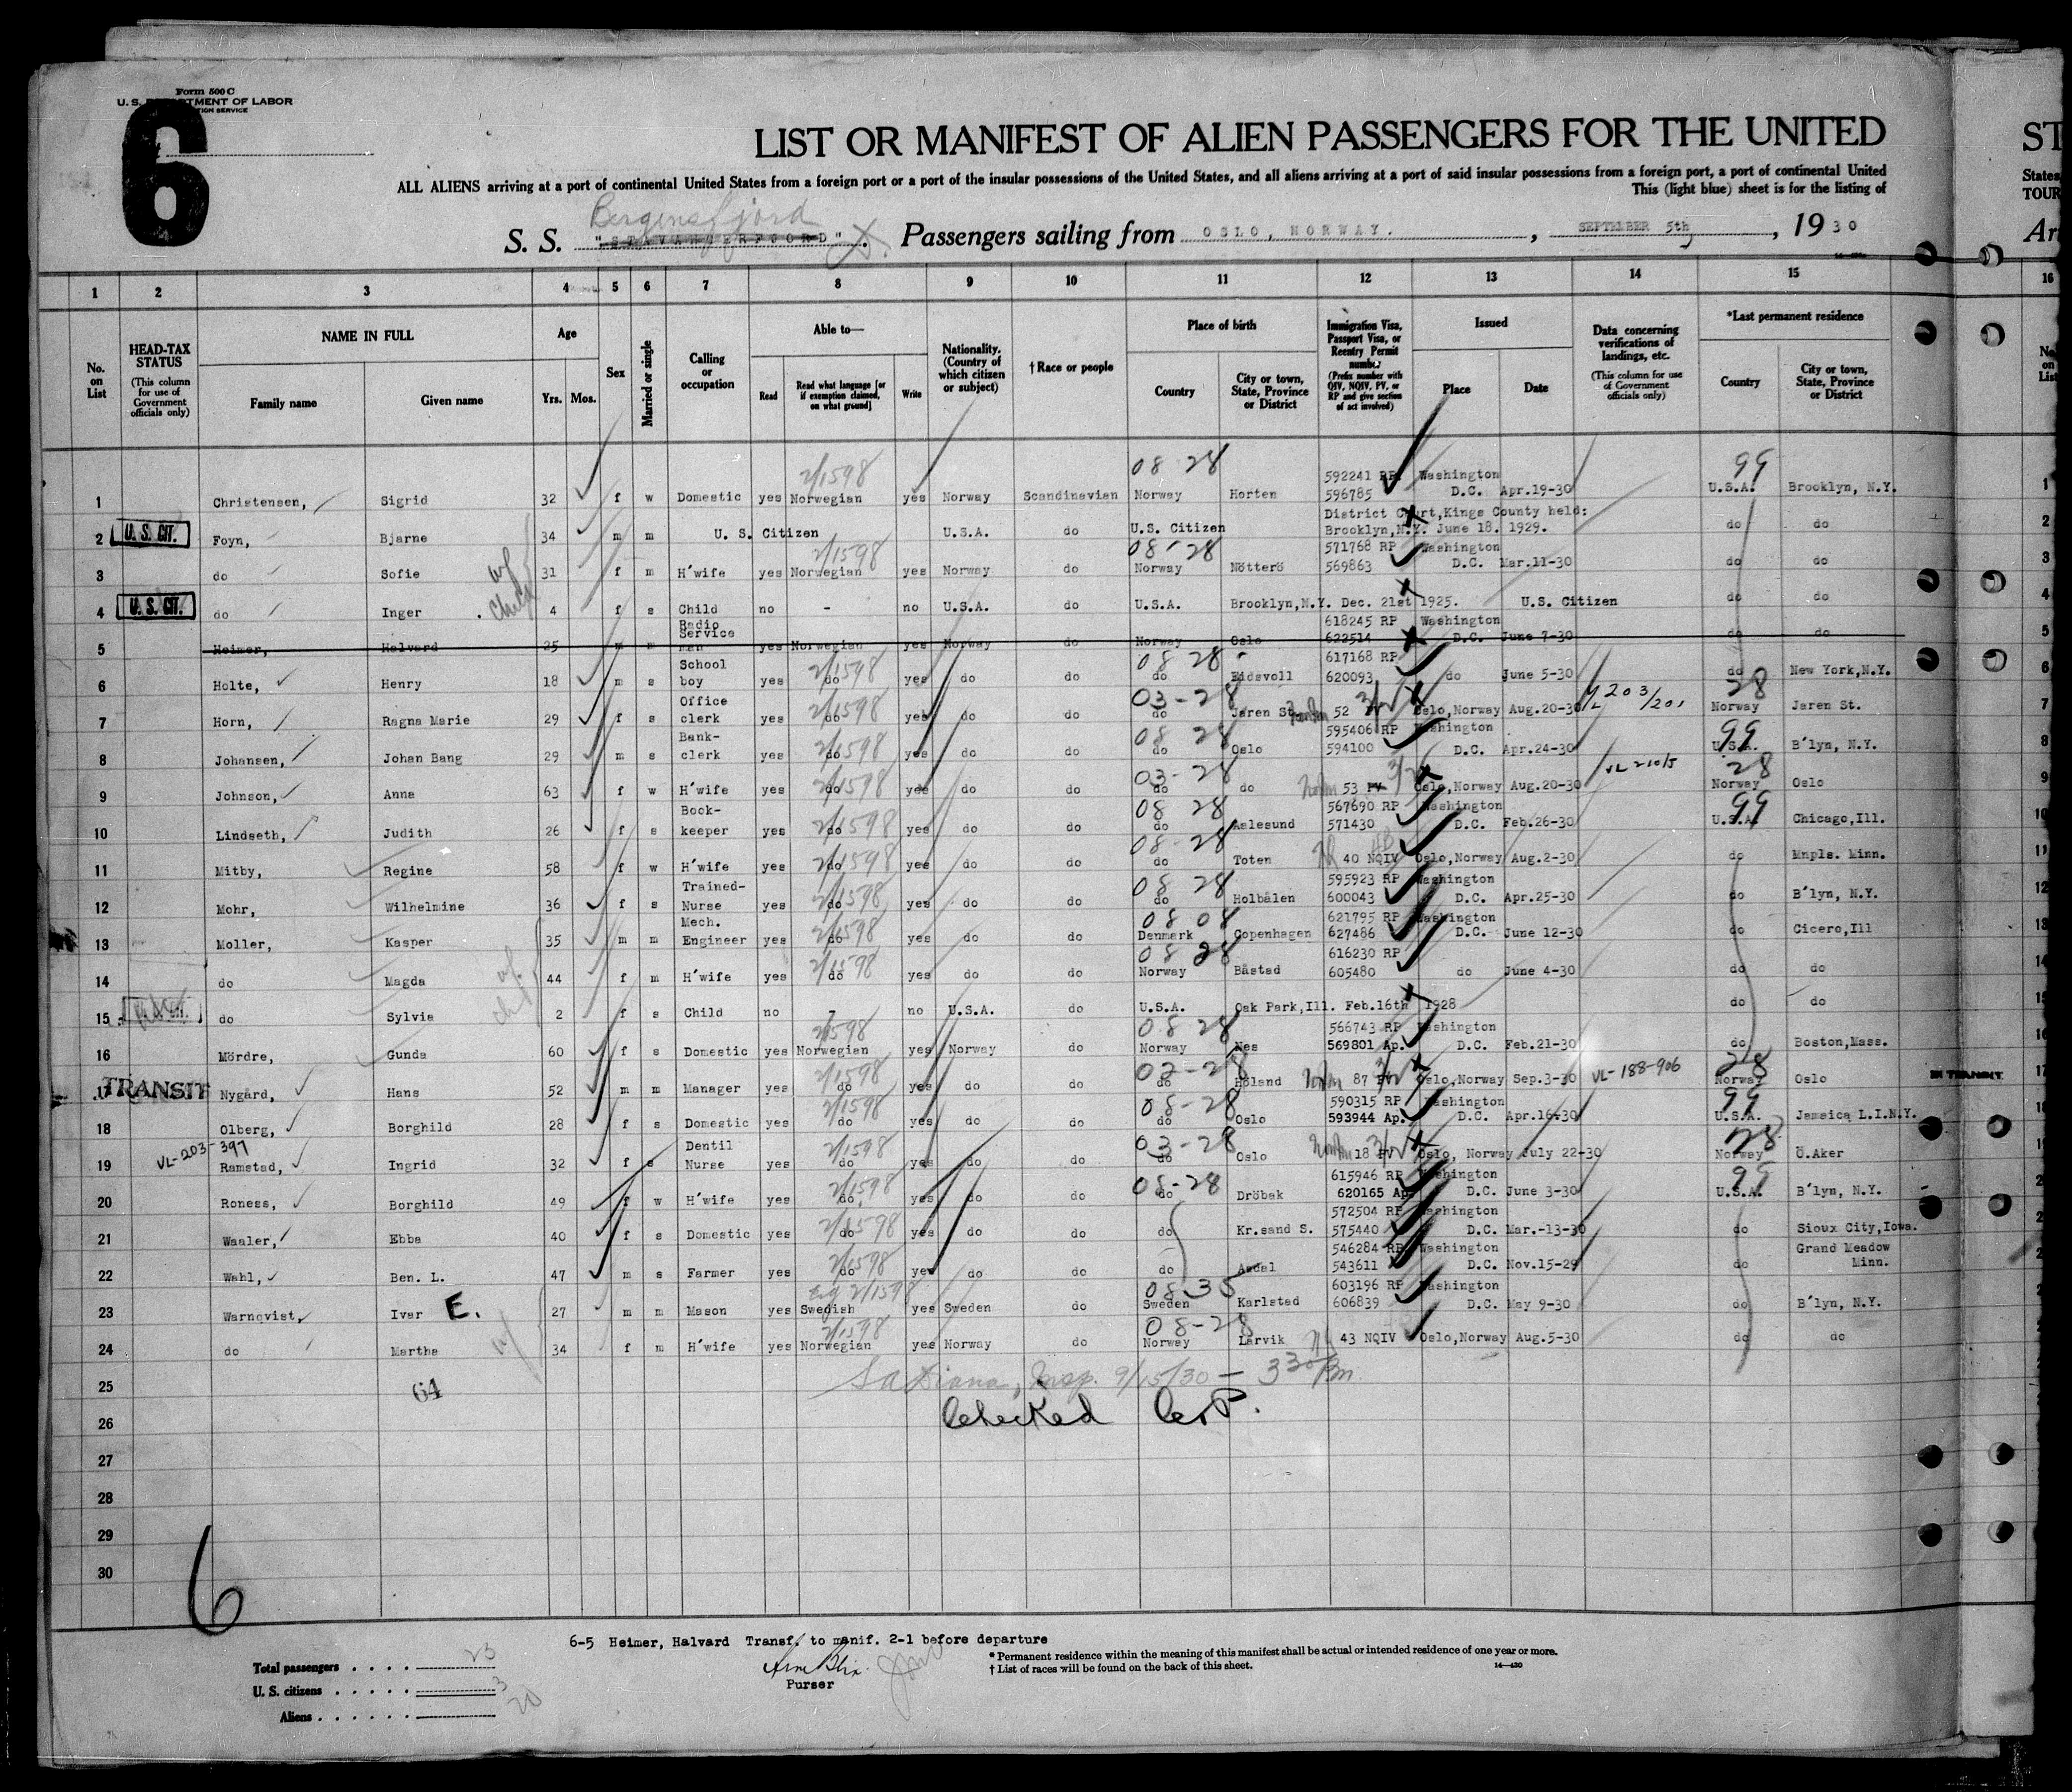 Form 500 C
U. S. DEPARTMENT OF LABOR
6
LIST OR MANIFEST OF ALIEN PASSENGERS FOR THE UNITED
ST
ALL ALIENS arriving at a port of continental United States from a foreign port or a port of the insular possessions of the United States, and all aliens arriving at a port of said insular possessions from a foreign port, a port of continental United
States
This (light blue) sheet is for the listing of
TOUR
Bergensfjord
S. S. "STAVANGERFJORD". Passengers sailing from OSLO, NORWAY. , SEPTEMBER 5th , 19 30
Arr
1 2 3 4 5 6 7 8 9 10 11 12 13 14 15 16
No. on List
HEAD-TAX STATUS
(This column for use of Government officials only)
NAME IN FULL
Family name Given name
Age
Yrs. Mos.
Sex
Married or single
Calling or occupation
Able to—
Read Read what language [or if exemption claimed, on what ground] Write
Nationality. (Country of which citizen or subject)
† Race or people
Place of birth
Country City or town, State, Province or District
Immigration Visa, Passport Visa, or Reentry Permit number.
(Prefix number with QIV, NQIV, PV, or RP and give section of act involved)
Issued
Place Date
Data concerning verifications of landings, etc.
(This column for use of Government officials only)
*Last permanent residence
Country City or town, State, Province or District
2/1598 08 28 592241 RP Washington 99
1 Christensen, Sigrid 32 f w Domestic yes Norwegian yes Norway Scandinavian Norway Horten 596785 D.C. Apr.19-30 U.S.A. Brooklyn, N.Y. 1
District Court,Kings County held:
2 U. S. CIT. Foyn, Bjarne 34 m m U. S. Citizen U.S.A. do U.S. Citizen Brooklyn,N.Y. June 18. 1929. do do 2
2/1598 08-28 571768 RP Washington
3 do Sofie 31 f m H'wife yes Norwegian yes Norway do Norway Nötterö 569863 D.C. Mar.11-30 do do 3
4 U. S. CIT. do Inger 4 f s Child no - no U.S.A. do U.S.A. Brooklyn,N.Y. Dec. 21st 1925. U.S. Citizen do do 4
Radio Service 618245 RP Washington
5 Heimer, Halvard 25 m m man yes Norwegian yes Norway do Norway Oslo 622514 D.C. June 7-30 do do 5
School 2/1598 08 28 617168 RP
6 Holte, Henry 18 m s boy yes do yes do do do Eidsvoll 620093 do June 5-30 do New York,N.Y. 6
Office 2/1598 03-28 28
7 Horn, Ragna Marie 29 f s clerk yes do yes do do do Jaren St. 52 Oslo,Norway Aug.20-30 203/201 Norway Jaren St. 7
Bank- 2/1598 08 28 595406 RP Washington 99
8 Johansen, Johan Bang 29 m s clerk yes do yes do do do Oslo 594100 D.C. Apr.24-30 U.S.A. B'lyn, N.Y. 8
2/1598 03-28 28
9 Johnson, Anna 63 f w H'wife yes do yes do do do do 53 PV Oslo,Norway Aug.20-30 Norway Oslo 9
Book- 2/1598 08 28 567690 RP Washington 99
10 Lindseth, Judith 26 f s keeper yes do yes do do do Aalesund 571430 D.C. Feb.26-30 U.S.A. Chicago,Ill. 10
2/1598 08-28
11 Mitby, Regine 58 f w H'wife yes do yes do do do Toten 40 NQIV Oslo,Norway Aug.2-30 do Mnpls. Minn. 11
Trained- 2/1598 08 28 595923 RP Washington
12 Mohr, Wilhelmine 36 f s Nurse yes do yes do do do Holbålen 600043 D.C. Apr.25-30 do B'lyn, N.Y. 12
Mech. 2/1598 08 08 621795 RP Washington
13 Moller, Kasper 35 m m Engineer yes do yes do do Denmark Copenhagen 627486 D.C. June 12-30 do Cicero,Ill 13
2/1598 08 28 616230 RP
14 do Magda 44 f m H'wife yes do yes do do Norway Båstad 605480 do June 4-30 do do 14
15 do Sylvia 2 f s Child no - no U.S.A. do U.S.A. Oak Park,Ill. Feb.16th 1928 do do 15
2/1598 08 28 566743 RP Washington
16 Mördre, Gunda 60 f s Domestic yes Norwegian yes Norway do Norway Nes 569801 Ap. D.C. Feb.21-30 do Boston,Mass. 16
2/1598 28
17 TRANSIT Nygård, Hans 52 m m Manager yes do yes do do do Höland 87 PV Oslo,Norway Sep.3-30 VL-188-906 Norway Oslo IN TRANSIT 17
2/1598 08-28 590315 RP Washington 99
18 Olberg, Borghild 28 f s Domestic yes do yes do do do Oslo 593944 Ap. D.C. Apr.16-30 U.S.A. Jamaica L.I.N.Y. 18
VL-203-397 Dentil 2/1598 03-28 28
19 Ramstad, Ingrid 32 f s Nurse yes do yes do do do Oslo 18 PV Oslo, Norway July 22-30 Norway Ö.Aker 19
2/1598 08-28 615946 RP Washington 99
20 Roness, Borghild 49 f w H'wife yes do yes do do do Dröbak 620165 Ap. D.C. June 3-30 U.S.A. B'lyn, N.Y.
2/1598 572504 RP Washington
21 Waaler, Ebba 40 f s Domestic yes do yes do do do Kr.sand S. 575440 D.C. Mar.-13-30 do Sioux City,Iowa.
2/1598 546284 RP Washington Grand Meadow
22 Wahl, Ben. L. 47 m s Farmer yes do yes do do do 543611 D.C. Nov.15-29 do Minn.
Eng 2/1598 08 35 603196 RP Washington
23 Warnqvist, Ivar E. 27 m m Mason yes Swedish yes Sweden do Sweden Karlstad 606839 D.C. May 9-30 do B'lyn, N.Y.
2/1598 08-28
24 do Martha 34 f m H'wife yes Norwegian yes Norway do Norway Larvik 43 NQIV Oslo,Norway Aug.5-30 do do
25 64 Insp. 9/15/30 — 330 Pm
26 Checked
27
28
29
30
6
6-5 Heimer, Halvard Transf. to manif. 2-1 before departure
Total passengers . . . . 23
U. S. citizens . . . . . 3
Aliens . . . . . . 20
Purser
* Permanent residence within the meaning of this manifest shall be actual or intended residence of one year or more.
† List of races will be found on the back of this sheet.
14—430